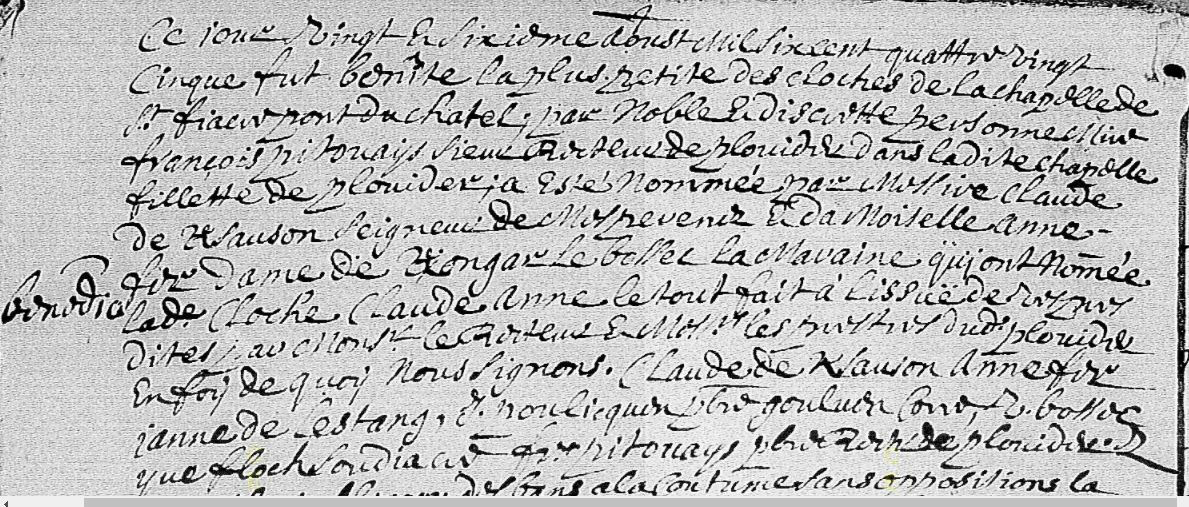 Ce iour Vingt & sixiéme Aoust Mil six cent quattre vingt
Cinque fut benite la plus petite des cloches de la chapelle de
St fiacre pont du chatel; par Noble & discrette personne Mire
françois pitouays sieur Recteur de plouider dans ladite chapelle
fillette de plouider; a Esté Nommée par Messire Claude
de Ksauson Seigneur de Mesprevenez & da Moiselle Anne
fer Dame de Kongar le bossec la Mavaine qui ont Nomée
benedic
lade Cloche Claude Anne le tout fait à Lissuë de vespres
dites par Monsr le Recteur & Messrs les prestres dudt plouider
En foÿ de quoÿ Nous signons. Claude de Ksauson Anne fer
janne de Lestang, poulicquen pbre goulven Corre, bossec
yve floch soudiacre fr. pitouays pbre Rectr de plouider
des bans a la Coutume sans oppositions la